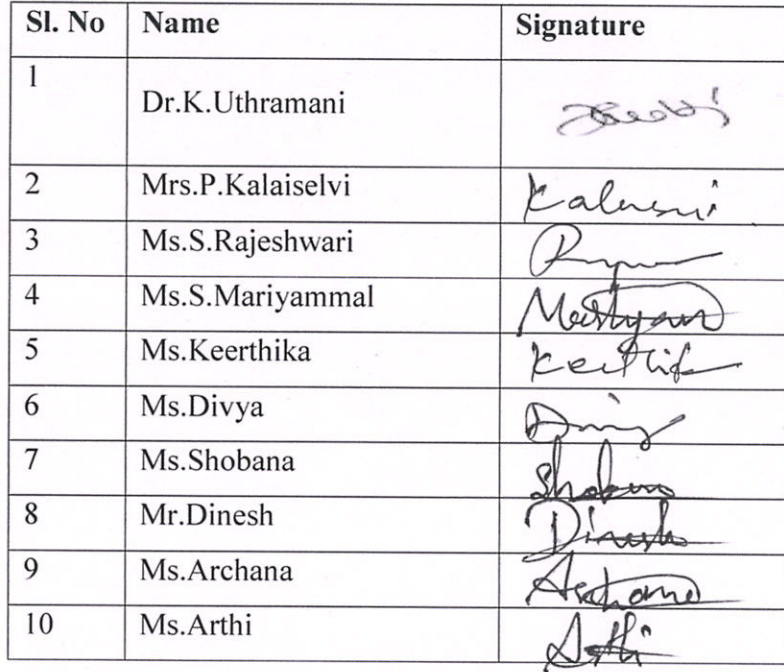 Sl. No Name Signature
1 Dr.K.Uthramani
2 Mrs.P.Kalaiselvi
3 Ms.S.Rajeshwari
4 Ms.S.Mariyammal
5 Ms.Keerthika
6 Ms.Divya
7 Ms.Shobana Shobana
8 Mr.Dinesh Dinesh
9 Ms.Archana Archana
10 Ms.Arthi Arthi